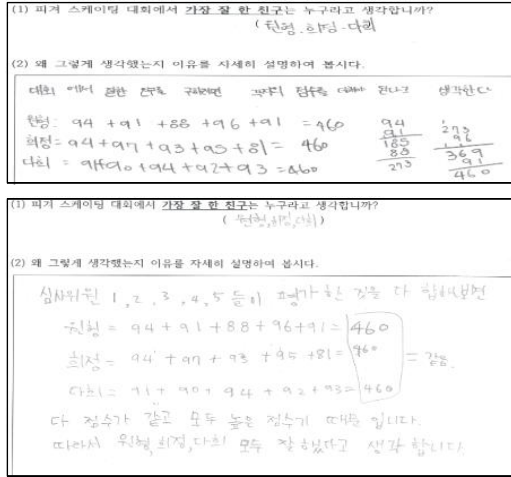 (1) 피겨 스케이팅 대회에서 가장 잘 한 친구는 누구라고 생각합니까?
( 원형, 희정, 다희
(2) 왜 그렇게 생각했는지 이유를 자세히 설명하여 봅시다.
대회 에서 잘한 친구를 구하려면 각자의 점수를 더해야 된다고 생각한다
원형: 94 +91 +88 +96 +91 =460
희정= 94+97 +93 +95+81= 460
다희 = 91+90+94+92+93=460
94
91
185
88
273
273
96
369
91
460
(1) 피겨 스케이팅 대회에서 가장 잘 한 친구는 누구라고 생각합니까?
( 원형,희정,다희)
(2) 왜 그렇게 생각했는지 이유를 자세히 설명하여 봅시다.
심사위원 1, 2, 3, 4, 5 들이 평가 한 것을 다 합해보면
원형 = 94 + 91 + 88 + 96 +91= 460
희정= 94 + 97 + 93 + 95 +81= 460 = 같음.
다희= 91 + 90+ 94 + 92 + 93= 460
다 점수가 같고 모두 높은 점수기 때문 입니다.
따라서 원형,희정,다희 모두 잘 했다고 생각 합니다.